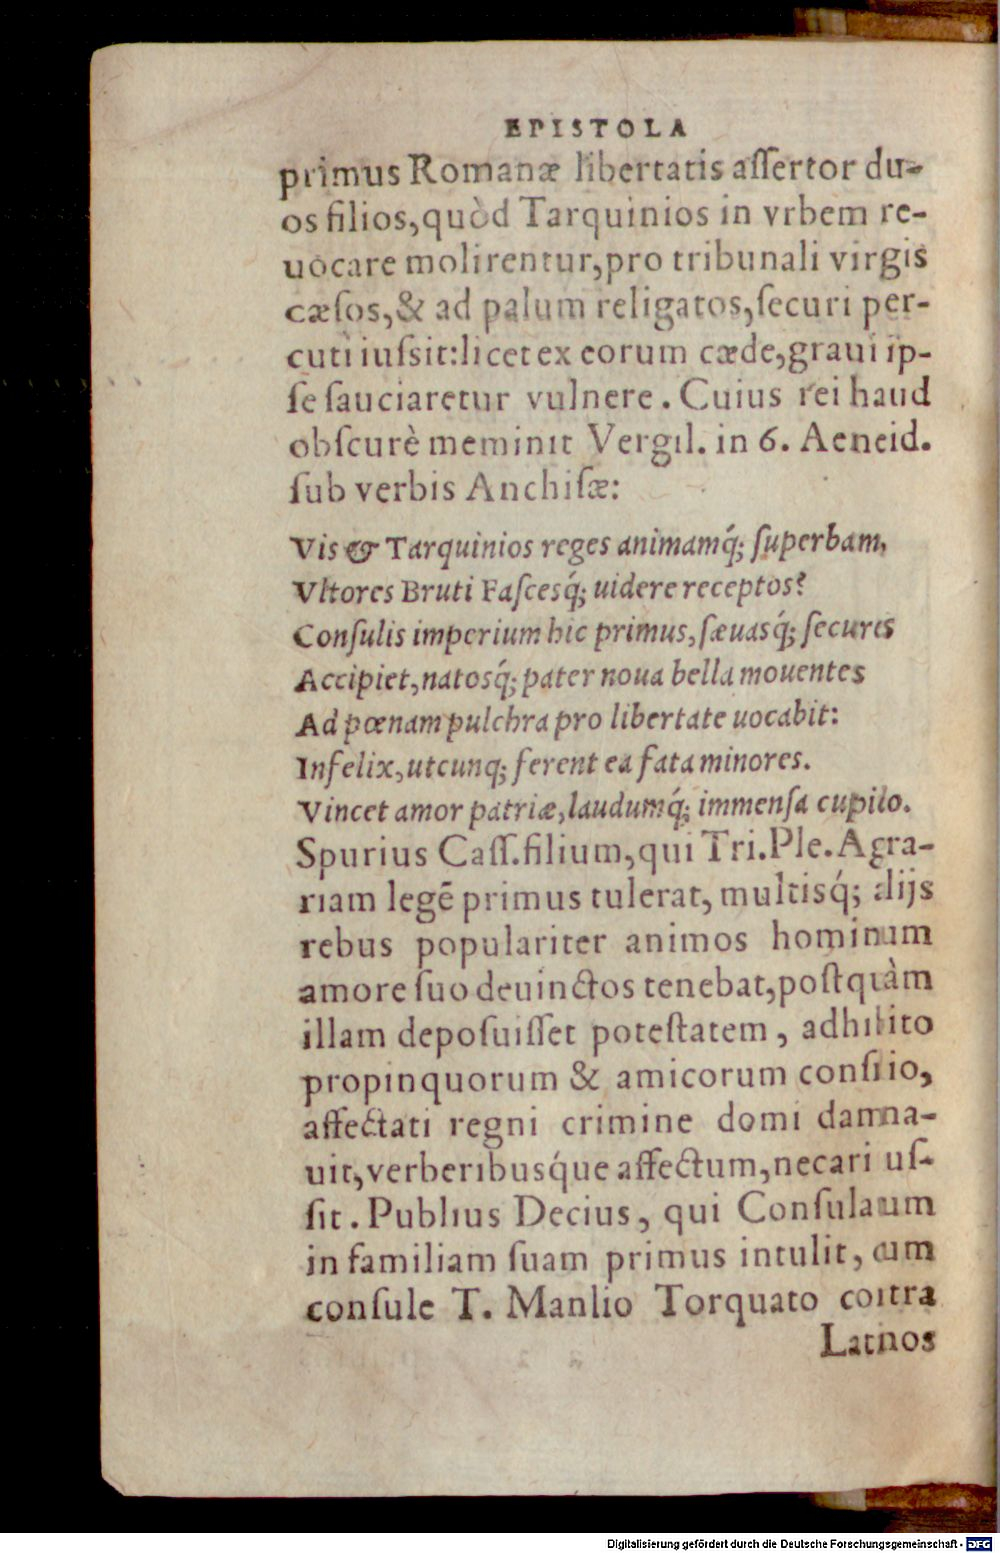 EPISTOLA
primus Romanæ libertatis aſſertor du-
os filios, quòd Tarquinios in vrbem re-
uocare molirentur, pro tribunali virgis
cæſos, & ad palum religatos, ſecuri per-
cuti iuſsit: licet ex eorum cæde, graui ip-
ſe ſauciaretur vulnere. Cuius rei haud
obſcurè meminit Vergil. in 6. Aeneid.
ſub verbis Anchiſæ:
Vis & Tarquinios reges animamq́; ſuperbam,
Vltores Bruti Faſcesq́; uidere receptos?
Conſulis imperium hic primus, ſæuasq́; ſecures
Accipiet, natosq́; pater noua bella mouentes
Ad pœnam pulchra pro libertate uocabit:
Infelix, utcunq; ferent ea fata minores.
Vincet amor patriæ, laudumq́; immenſa cupido.
Spurius Caſſ. filium, qui Tri. Ple. Agra-
riam legē primus tulerat, multisq́; alijs
rebus populariter animos hominum
amore ſuo deuinctos tenebat, poſtquàm
illam depoſuiſſet poteſtatem, adhibito
propinquorum & amicorum conſilio,
affectati regni crimine domi damna-
uit, verberibusq́ue affectum, necari iuſ-
ſit. Publius Decius, qui Conſulatum
in familiam ſuam primus intulit, cum
conſule T. Manlio Torquato contra
Latinos
Digitalisierung gefördert durch die Deutsche Forschungsgemeinschaft - DFG